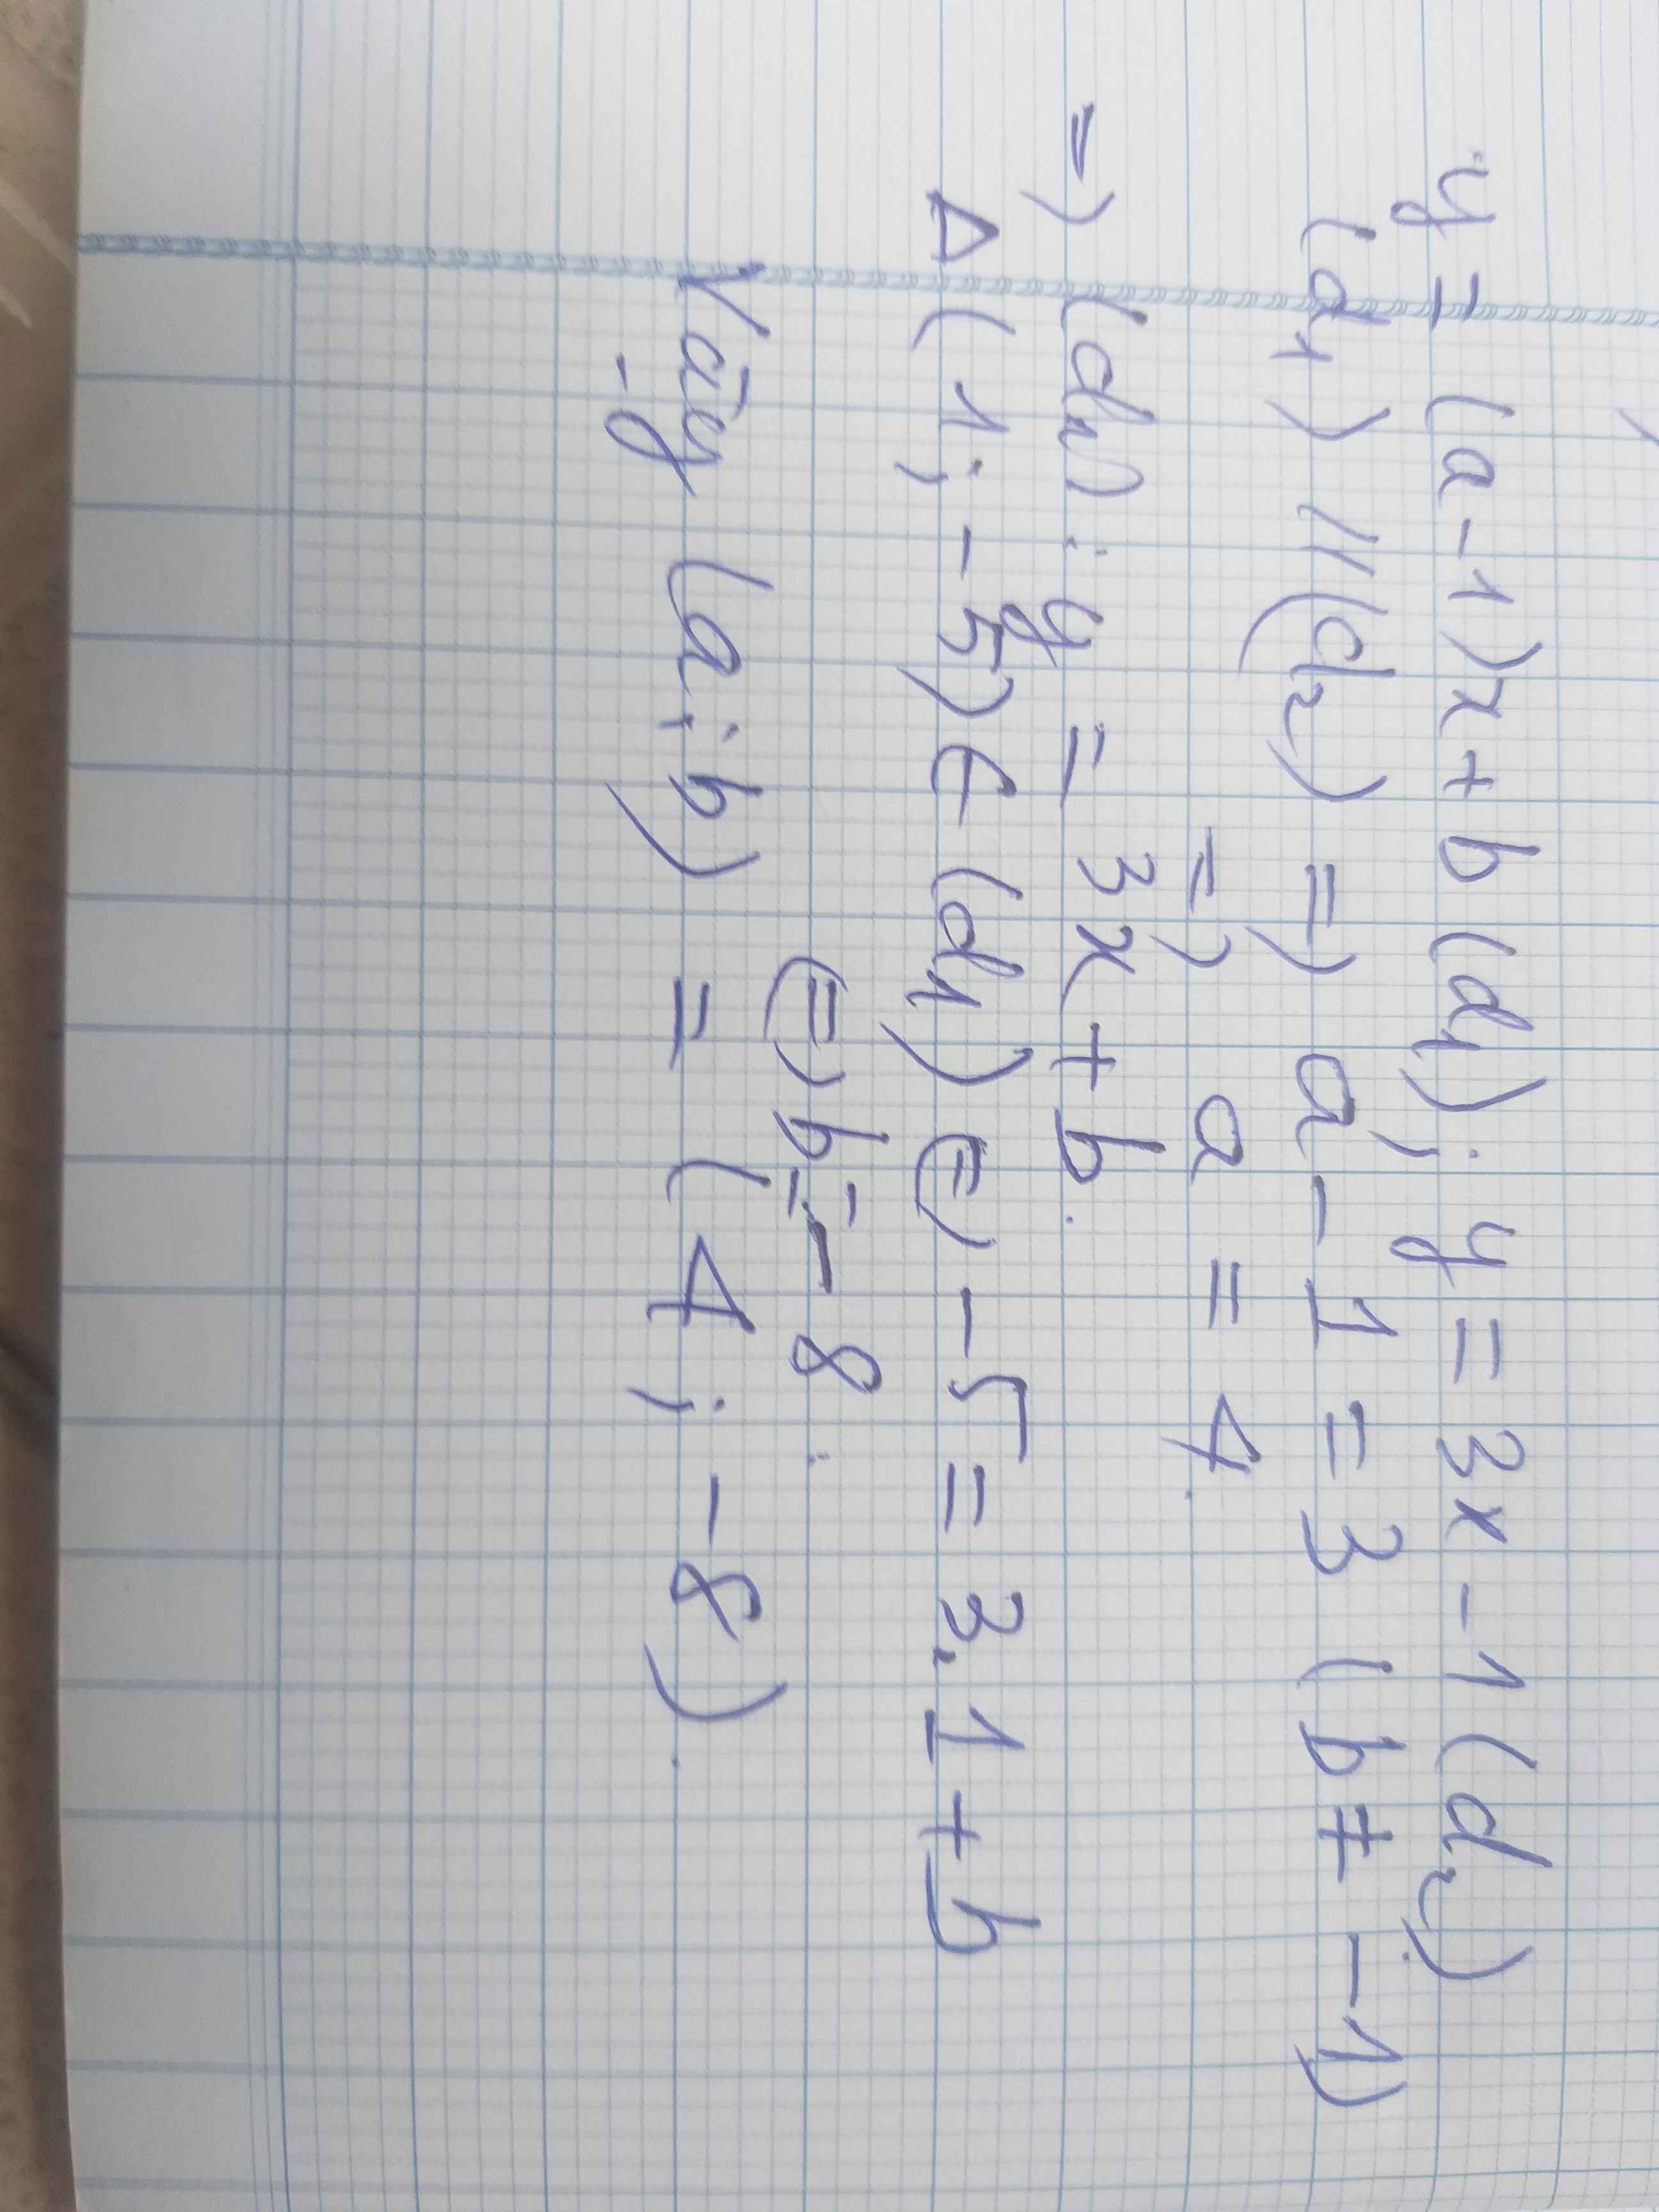 y = (a-1)x + b (d₁); y = 3x - 1 (d₂)
(d₁) // (d₂) => a - 1 = 3 (b ≠ -1)
=> a = 4.
=> (d₁): y = 3x + b.
A (1; -5) ∈ (d₁) (=) -5 = 3.1 + b
(=) b = -8.
Vậy (a; b) = (4; -8).